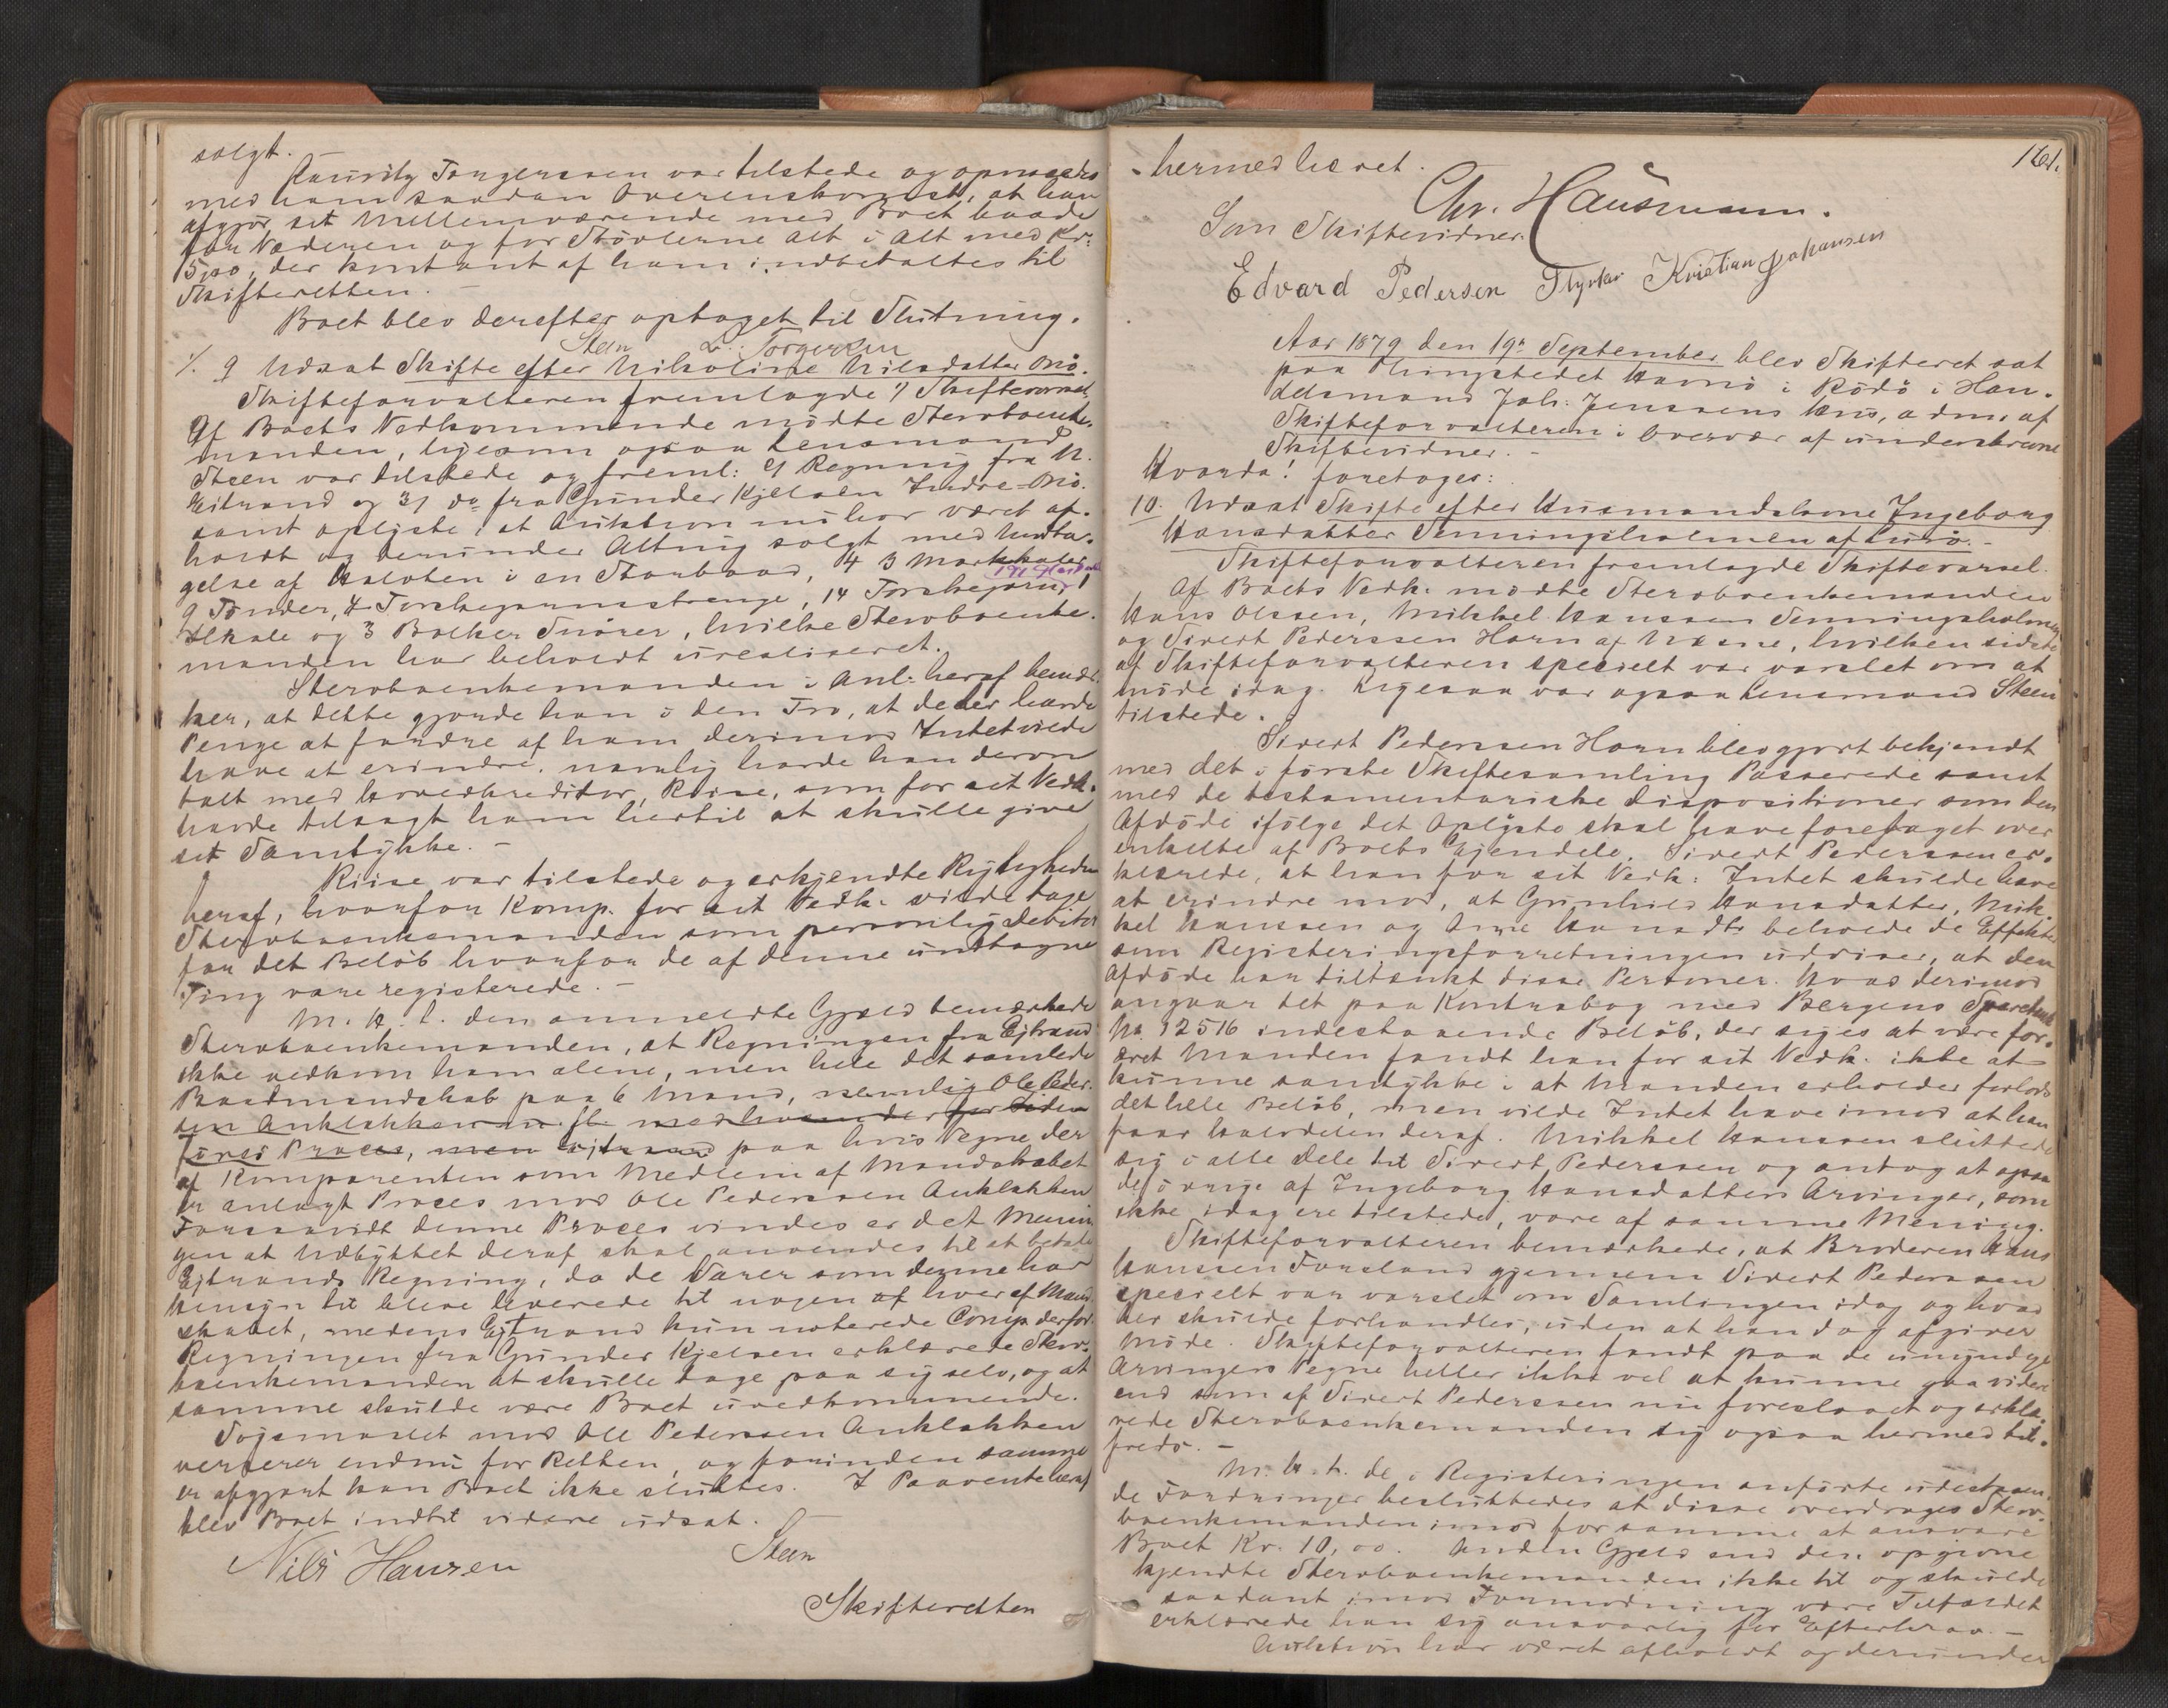 solgt. —
Lauritz Torgerssen var tilstede og opnaaedes
med ham saadan Overenskomst, at han
afgjør sit Mellemværende med Boet baade
for Væderen og for Støvlerne alt i alt med Kr.
5,00, der kontant af ham indbetaltes til
Skifteretten. —
Boet blev derefter optaget til Slutning.
Steen L. Torgersen
9 Udsat Skifte efter Nikoline Nilsdatter Mø.
Skifteforvalteren fremlagde 1/ Skiftevarsel.
Af Boets Vedkommende mødte Stervboenke-
manden, ligesom ogsaa Lensmand
Steen var tilstede og freml: 2/ Regning fra N.
Eitrand og 3/ do fra Gunder Kjelsen Indre-Mø.
samt oplyste, at Auktion nu har været af-
holdt og derunder Alting solgt med Undta-
gelse af Halvten i en Storbaad, 4 3 Marks
9 Tønder, 4 Torskegarnsstrenge, 14 Torskegarn,
Ilkale og 3 Bolker Snører, hvilke Stervboenke-
manden har beholdt urealiseret.
Stervboenkemanden i Anl: heraf bemær-
ker, at dette gjorde han i den Tro, at de der havde
Penge at fordre af ham derimod Intet vilde
have at erindre, navnlig havde han derom
talt med Hovedkreditor, Riise, som for sit Vedk.
havde tilsagt ham hertil at skulle give
sit Samtykke. —
Riise var tilstede og erkjendte Rigtigheden
heraf, hvorfor Komp. for sit Vedk. vilde tage
Stervboenkemanden som personlig Debitor
for det Beløb hvorfor de af denne undtagne
Ting vare registerede. —
M. H. t. den anmeldte Gjæld bemærkede
Stervboenkemanden, at Regningen fra Ejtrand
ikke vedkom ham alene, men hele det samlede
Baadmandskab paa 6 Mand, nemlig Ole Peder-
sen Anklakken m. fl. med hvem der for Tiden
føres Proces, men Ejtrand paa hvis Vegne der
af Komparenten som Medlem af Mandskabet
er anlagt Proces mod Ole Pederssen Anklakken
Forsaavidt denne Proces vindes er det Menin-
gen at Udbyttet deraf skal anvendes til at betale
Ejtrands Regning, da de Varer som denne har
Hensyn til bleve leverede til nogen af hver af Mand-
skabet, medens Ejtrand kun noterede Comp. derfor.
Regningen fra Gunder Kjelsen erklærede Sterv-
boenkemanden at skulle tage paa sig selv, og at
samme skulde være Boet uvedkommende.
Søgsmaalet mod Ole Pederssen Anklakken
verserer endnu for Retten, og forinden samme
er afgjort kan Boet ikke sluttes. I Paavente heraf
blev Boet indtil videre udsat. —
Nils Hansen Steen
Skifteretten
161.
hermed hævet.
Chr. Hausmann.
Som Skiftevidner.
Edvard Pedersen Styrker Kristian Johansen
Aar 1879 den 19de September blev Skifteret sat
paa Thingstedet Havnø i Rødø i Han-
delsmand Joh: Jenssens Hus, adm. af
Skifteforvalteren i Overvær af underskrevne
Skiftevidner. —
Hvorda! foretoges:
10. Udsat Skifte efter Husmandskone Ingeborg
Hansdatter Senningsholmen af Lurø. —
Skifteforvalteren fremlagde Skiftevarsel.
Af Boets Vedk: mødte Stervboenkemanden
Hans Olssen, Mikkel Hanssen Senningsholmen
og Sivert Pederssen Horn af Næsne, hvilken sidste
af Skifteforvalteren specielt var varslet om at
møde idag. Ligesaa var ogsaa Lensmand Steen
tilstede.
Sivert Pederssen Horn blev gjort bekjendt
med det i første Skiftesamling Passerede samt
med de testamentariske Dispositioner som den
Afdøde ifølge det Oplyste skal have foretaget over
enkelte af Boets Ejendele. Sivert Pederssen er-
klærede, at han for sit Vedk: Intet skulde have
at erindre mod, at Gunhild Hansdatter, Mik-
kel Hanssen og Anne Hansdtr beholde de Effekter
som Registeringsforretningen udviser, at den
Afdøde har tiltænkt disse Personer. Hvad derimod
angaar det paa Kontrabog med Bergens Sparebank
No. 12516 indestaaende Beløb, der siges at være for-
æret Manden fandt han for sit Vedk. ikke at
kunne samtykke i at Manden erholder forlods
det hele Beløb, men vilde Intet have imod at han
faar Halvdelen deraf. Mikkel Hanssen sluttede
sig i alle Dele til Sivert Pederssen og antog at ogsaa
de øvrige af Ingeborg Hansdatters Arvinger, som
ikke idag ere tilstede, vare af samme Mening.
Skifteforvalteren bemærkede, at Broderen Hans
Hanssen Forsland gjennem Sivert Pederssen
specielt var varslet om Samlingen idag og hvad
der skulde forhandles, uden at han dog afgiver
Møde. Skifteforvalteren fandt paa de umyndige
Arvingers Vegne heller ikke vel at kunne gaa videre
end som af Sivert Pederssen nu foreslaaet og erklæ-
rede Stervboenkemanden sig ogsaa hermed til-
freds. —
M. H. t. de i Registeringen anførte udestaaen-
de Fordringer besluttedes at disse overdrages Sterv-
boenkemanden imod for samme at ansvare
Boet Kr. 10,00. Anden Gjæld end den opgivne
kjendte Stervboenkemanden ikke til og skulde
saadant imod Formodning være Tilfældet
erklærede han sig ansvarlig for Efterkrav. —
Auktion har været afholdt og derunder